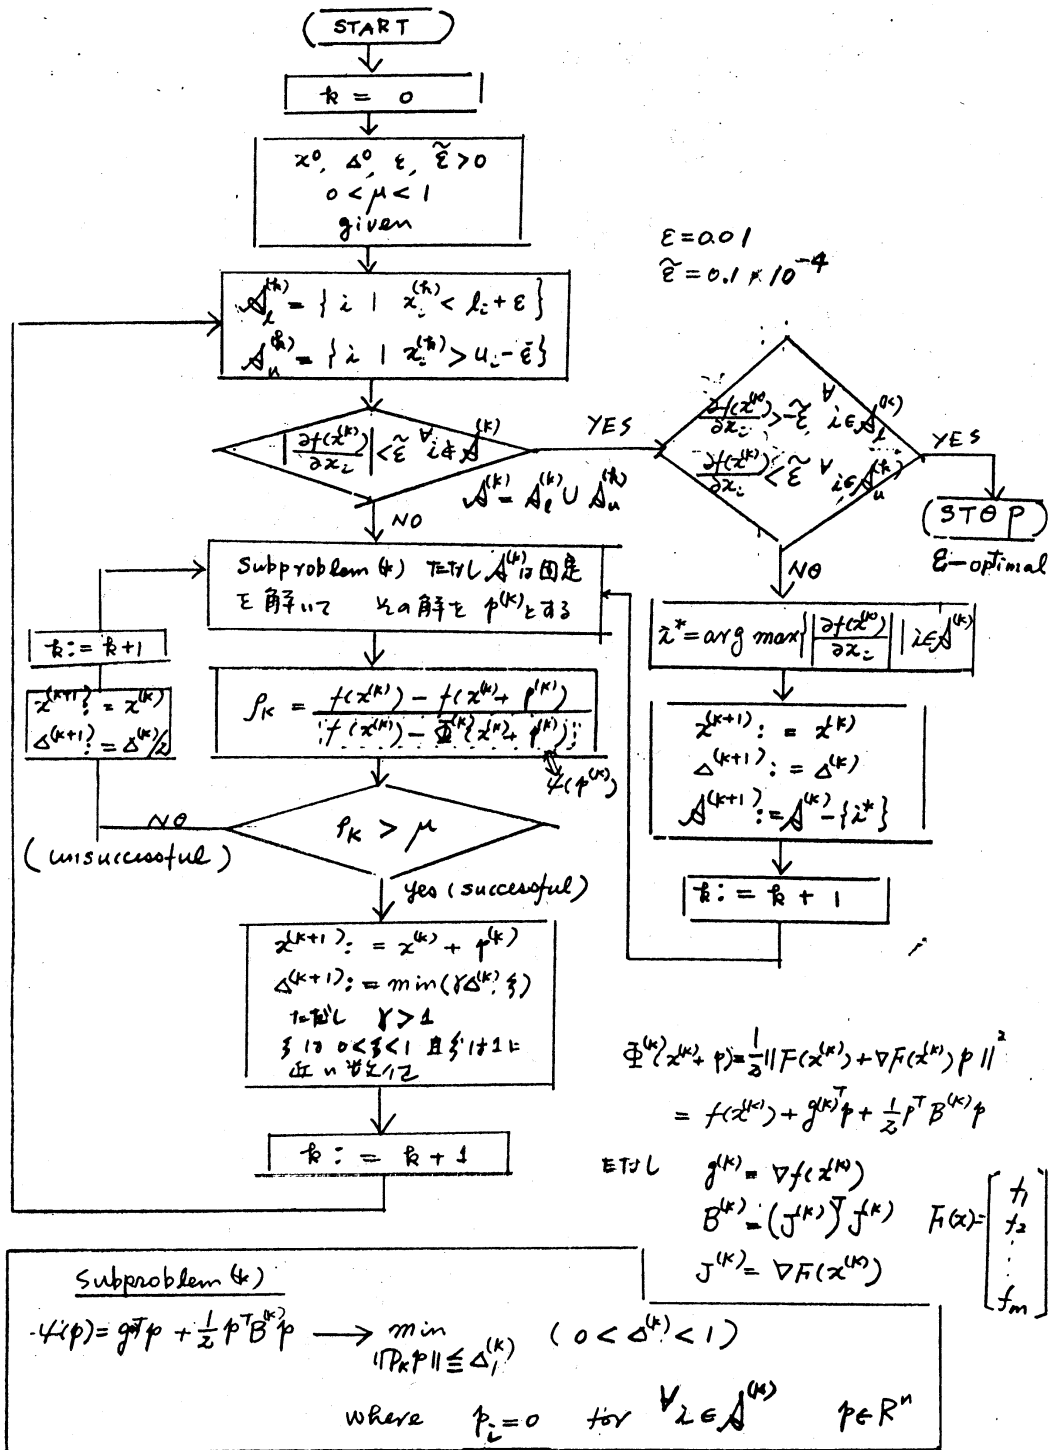 START
k = 0
x⁰, Δ⁰, ε, ε̃ > 0
0 < μ < 1
given
ε = 0.01
ε̃ = 0.1 × 10⁻⁴
𝒜_l^(k) = { i | x_i^(k) < l_i + ε }
𝒜_u^(k) = { i | x_i^(k) > u_i − ε }
|∂f(x^(k))/∂x_i| < ε̃ ∀i ∉ 𝒜^(k)
YES
𝒜^(k) = 𝒜_l^(k) ∪ 𝒜_u^(k)
NO
∂f(x^(k))/∂x_i > −ε̃, ∀i ∈ 𝒜_l^(k)
∂f(x^(k))/∂x_i < ε̃ ∀i ∈ 𝒜_u^(k)
YES
STOP
ε-optimal
NO
Subproblem (k) ただし 𝒜^(k)は固定
を解いて その解を p^(k)とする
k := k+1
x^(k+1) := x^(k)
Δ^(k+1) := Δ^(k)/2
ρ_k = (f(x^(k)) − f(x^(k) + p^(k))) / (f(x^(k)) − Φ^(k)(x^(k) + p^(k)))
ψ(p^(k))
i* = arg max{ |∂f(x^(k))/∂x_i| | i ∈ 𝒜^(k) }
x^(k+1) := x^(k)
Δ^(k+1) := Δ^(k)
𝒜^(k+1) := 𝒜^(k) − {i*}
k := k + 1
ρ_k > μ
NO
(unsuccessful)
yes (successful)
x^(k+1) := x^(k) + p^(k)
Δ^(k+1) := min(γΔ^(k), ξ)
ただし γ > 1
ξ は 0<ξ<1 且ξは1に
近い数として
k := k + 1
Φ^(k)(x^(k) + p) = ½‖F(x^(k)) + ∇F(x^(k)) p‖²
= f(x^(k)) + g^(k)T p + ½ p^T B^(k) p
ただし g^(k) = ∇f(x^(k))
B^(k) = (J^(k))^T J^(k)
J^(k) = ∇F(x^(k))
F(x) = [f₁ f₂ ⋮ f_m]
Subproblem (k)
ψ(p) = g^(k)T p + ½ p^T B^(k) p → min ‖P_k p‖ ≦ Δ^(k) (0 < Δ^(k) < 1)
where p_i = 0 for ∀i ∈ 𝒜^(k) p ∈ R^n